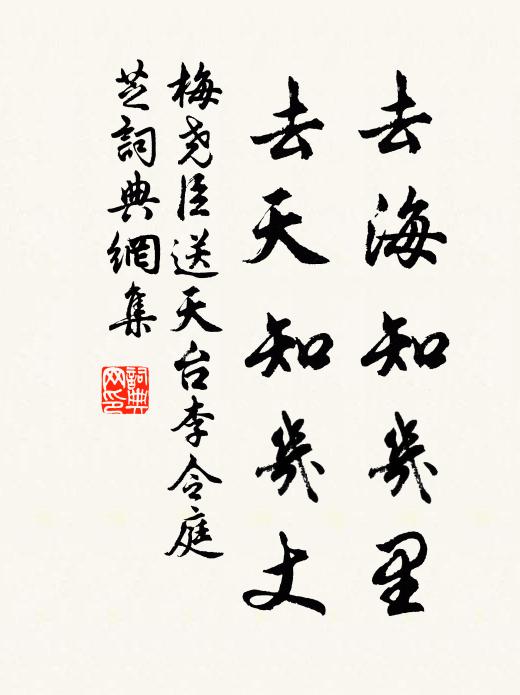 去海知幾里
去天知幾丈
梅堯臣送天台李令庭
芝詞典網集
詞典
网印